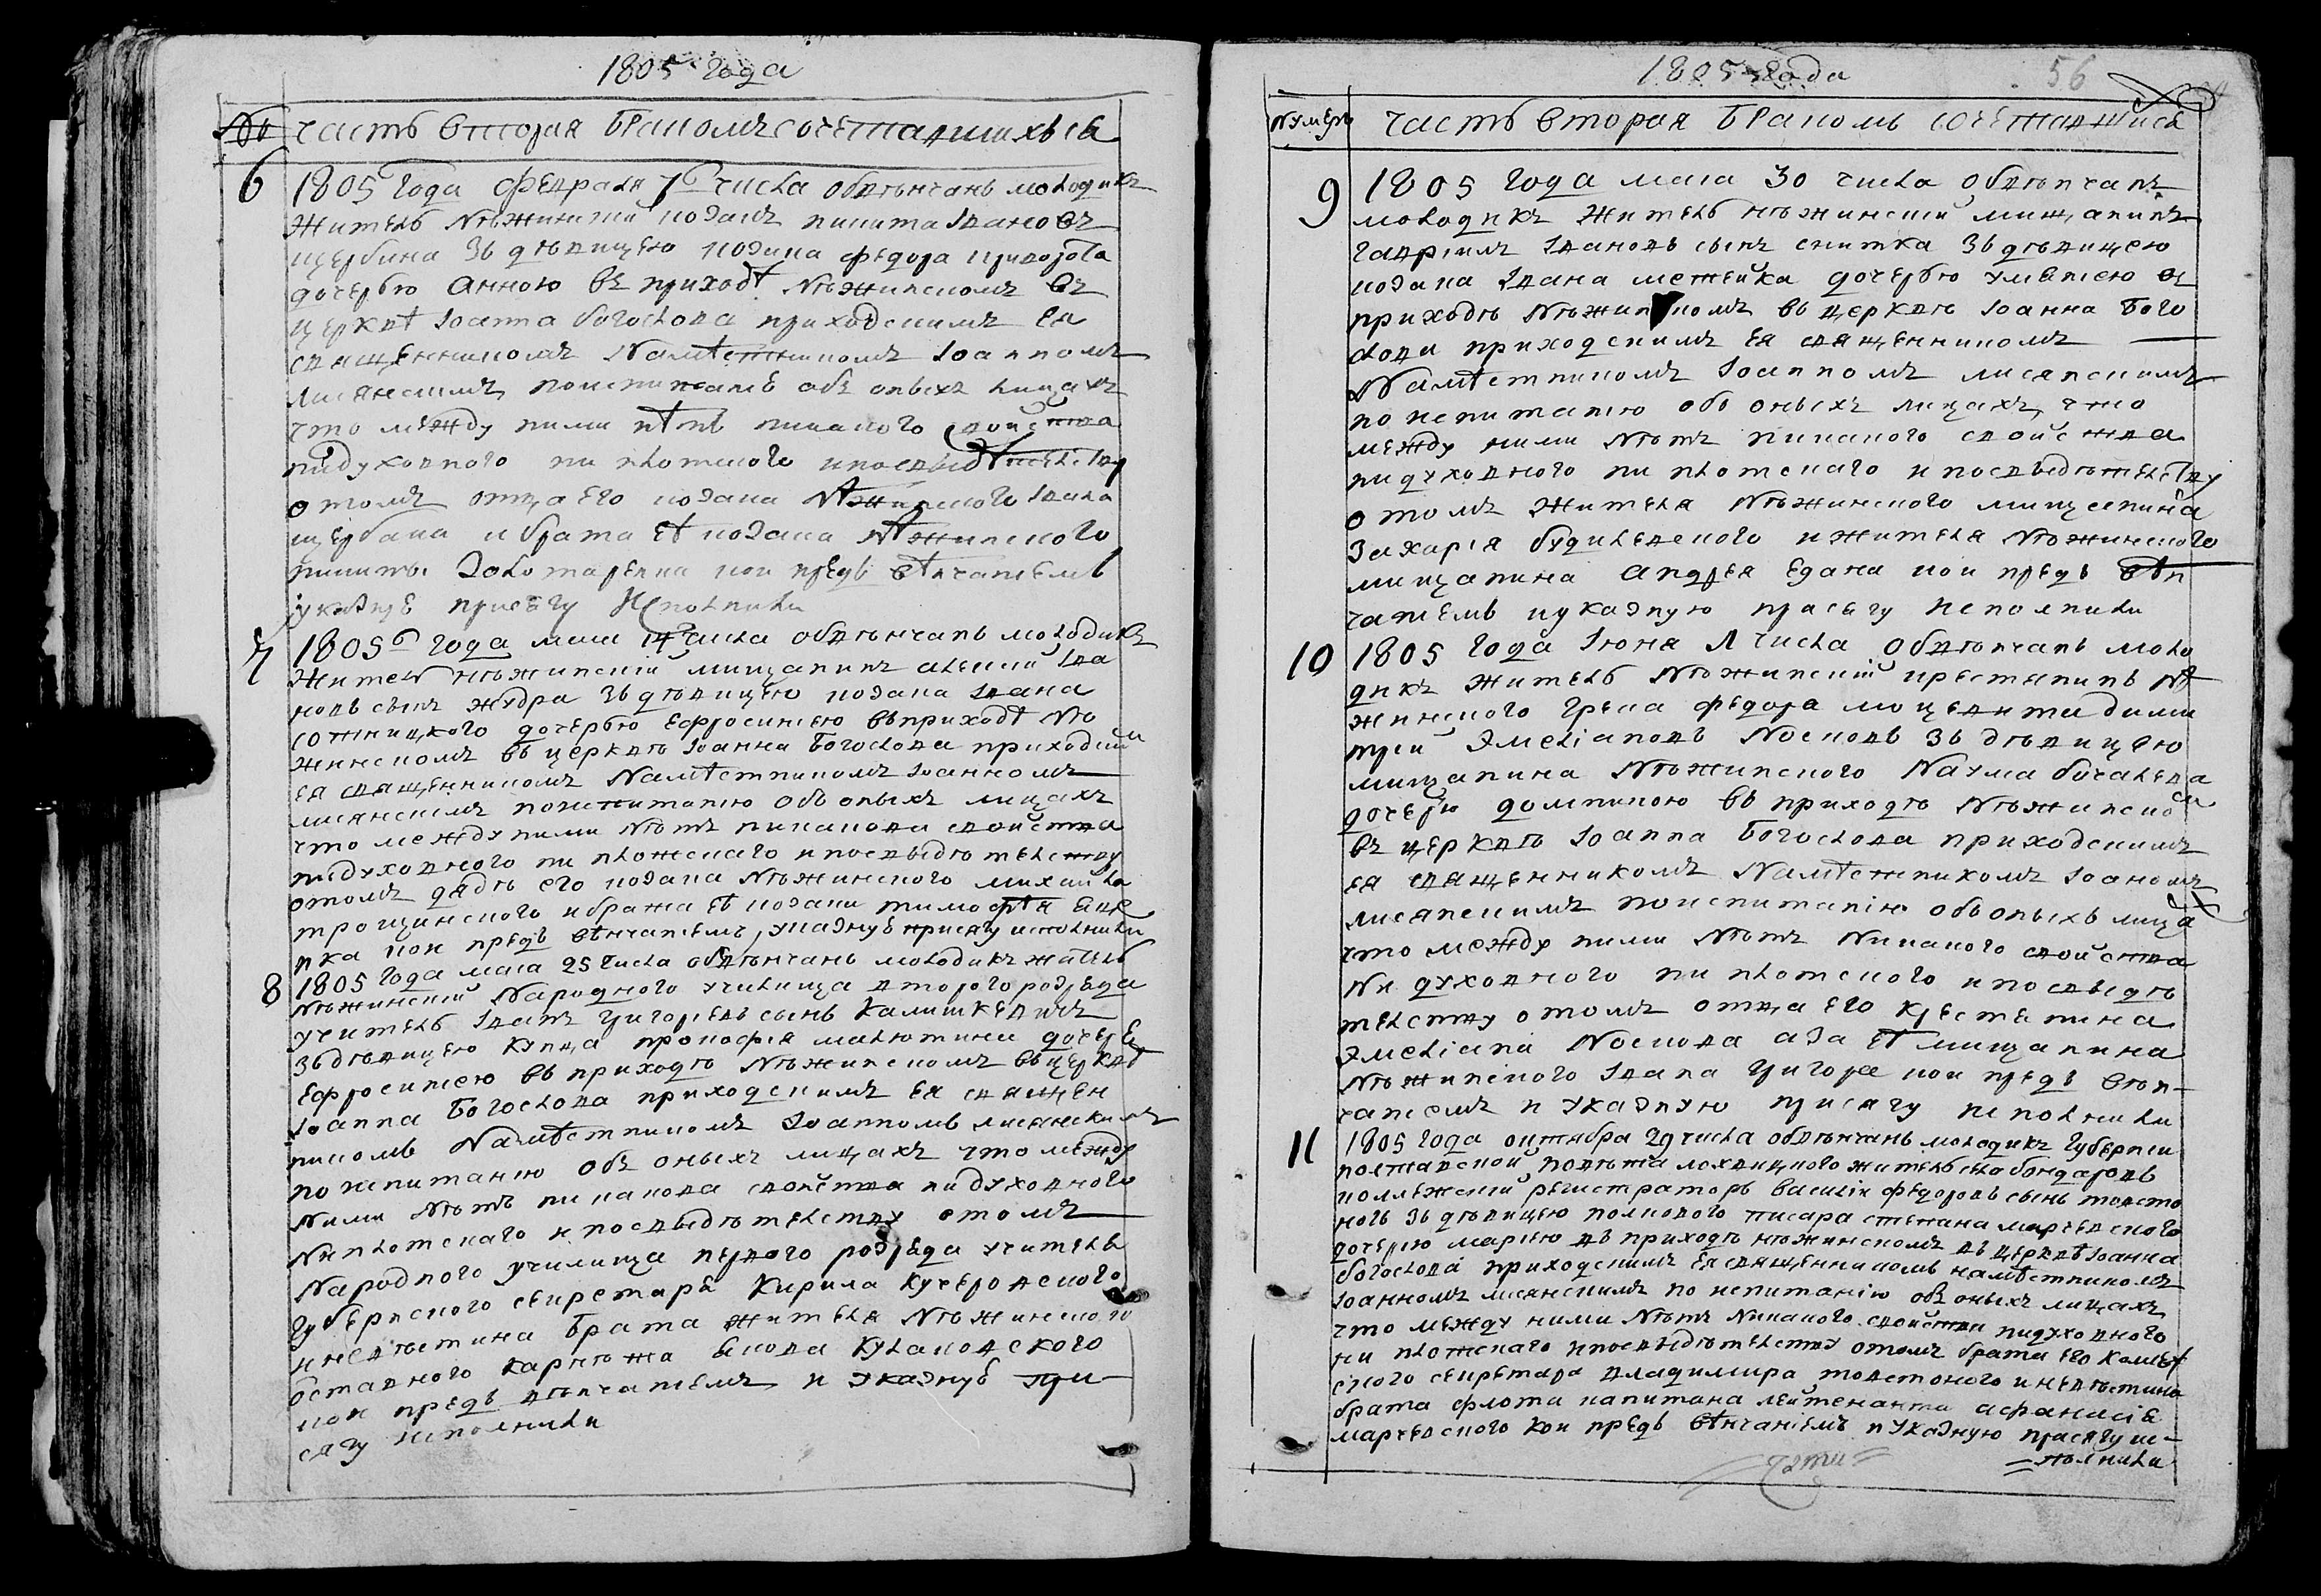 1805 года
№ часть вторая бракомъ сочетавшихъся
6 1805 года февраля 7 числа обвѣнчанъ молодикъ
житель нѣжинский козакъ никита Івановъ
щербина зъ дѣвицею козака федора криворота
дочерью Анною въ приходѣ нѣжинскомъ въ
церквѣ Іоанна богослова приходскимъ ея
священникомъ намѣстникомъ Іоанномъ
лисянскимъ об онихъ лицахъ
что между ними нѣтъ никакого свойства
ни духовного ни плотского и посвыдѣтелству
о томъ отца его козака нѣжинского Івана
щербини и брата еѣ козака нѣжинского
никиты кои предъ вѣнчаніемъ
указную присягу исполнили
7 1805 года маия 14 числа обвѣнчанъ молодикъ
житель нѣжинский мищанинъ алексій Іва
новъ сынъ жудра зъ дѣвицею козака Івана
сотницкого дочерью Ефросиниею въ приходѣ нѣ
жинскомъ въ церквѣ Іоанна Богослова приходским
ея священникомъ намѣстникомъ Іоанномъ
лисянскимъ об оныхъ лицахъ
что между ними нѣтъ никакова свойства
ни духовного ни плотскаго и посвыдѣтелству
о томъ дядѣ его козака нѣжинского михайла
трощинского и брата еѣ козака тимофѣя
кои предъ вѣнчаніемъ указную присягу исполнили
8 1805 года маия 25 числа обвѣнчанъ молодикъ житель
нѣжинский народного училища второго розряда
учитель Іванъ григориевъ сынъ
зъ дѣвицею купца прокофія малютина дочерю
Ефросиниею въ приходѣ нѣжинскомъ въ церквѣ
Іоанна Богослова приходскимъ ея священ
никомъ намѣстникомъ Іоанномъ лисянскимъ
по испитанию об оныхъ лицахъ что между
ними нѣтъ никакова свойства ни духовного
ни плотскаго и посвыдѣтелству о томъ
народного училища первого розряда учителя
губернского секретаря Кирила Кучеровского
и невѣстина брата жителя нѣжинского
оставного Якова Кулаковского
кои предъ вѣнчаніемъ и указную при
сягу исполнили
1805 года 56
Нумеръ часть вторая Бракомъ сочетавшися
9 1805 года маия 30 числа обвѣнчанъ
молодикъ житель нѣжинский мищанинъ
гавріилъ Івановъ сынъ снитка зъ дѣвицею
козака Івана дочерью улияниею въ
приходѣ нѣжинскомъ въ церквѣ Іоанна Бого
слова приходскимъ ея священникомъ
намѣстникомъ Іоанномъ лисянскимъ
по испитанію объ оныхъ лицахъ, что
между ними нѣтъ никакого свойства
ни духовного ни плотскаго и посвыдѣтелству
о томъ жителя нѣжинского мищанина
захарія и жителя нѣжинского
мищанина андрея кои предъ вѣн
чаніемъ и указную присягу исполнили
10 1805 года Июня Л числа обвѣнчанъ моло
дикъ житель нѣжинский крестянинъ нѣ
жинского грека федора дими
трій Эмеліановъ Носковъ зъ дѣвицею
мищанина нѣжинского Наума
дочерю домникою въ приходѣ нѣжинском
въ церквѣ Іоанна Богослова приходскимъ
ея священникомъ намѣстникомъ Іоаномъ
лисянскимъ по испитанію объ оныхъ лица
что между ними нѣтъ никакого свойства
ни духовного ни плотского и посвыдѣ
телству о томъ отца его крестянина
Эмеліана Носкова а за еѣ мищанина
нѣжинского Івана григоре кои предъ вѣн
чаніемъ и указную присягу исполнили
11 1805 года октября 29 числа обвѣнчанъ молодикъ губернии
полтавской повѣта лохвицкого житель села бондаровъ
коллежский регистраторъ василій федоровъ сынъ толсто
ногъ зъ дѣвицею полкового писаря степана марчевского
дочерию мариею въ приходѣ нѣжинскомъ въ церквѣ Іоанна
богослова приходскимъ ея священникомъ намѣстникомъ
Іоанномъ лисянскимъ по испитанію объ оныхъ лицахъ
что между ними нѣтъ никакого свойства ни духовного
ни плотскаго и посвыдѣтелству о томъ брата его
ского секретара владимира толстоного и невѣстина
брата флота капитана лейтенанта афанасія
марчевского кои предъ вѣнчаніемъ и указную присягу ис
полнили